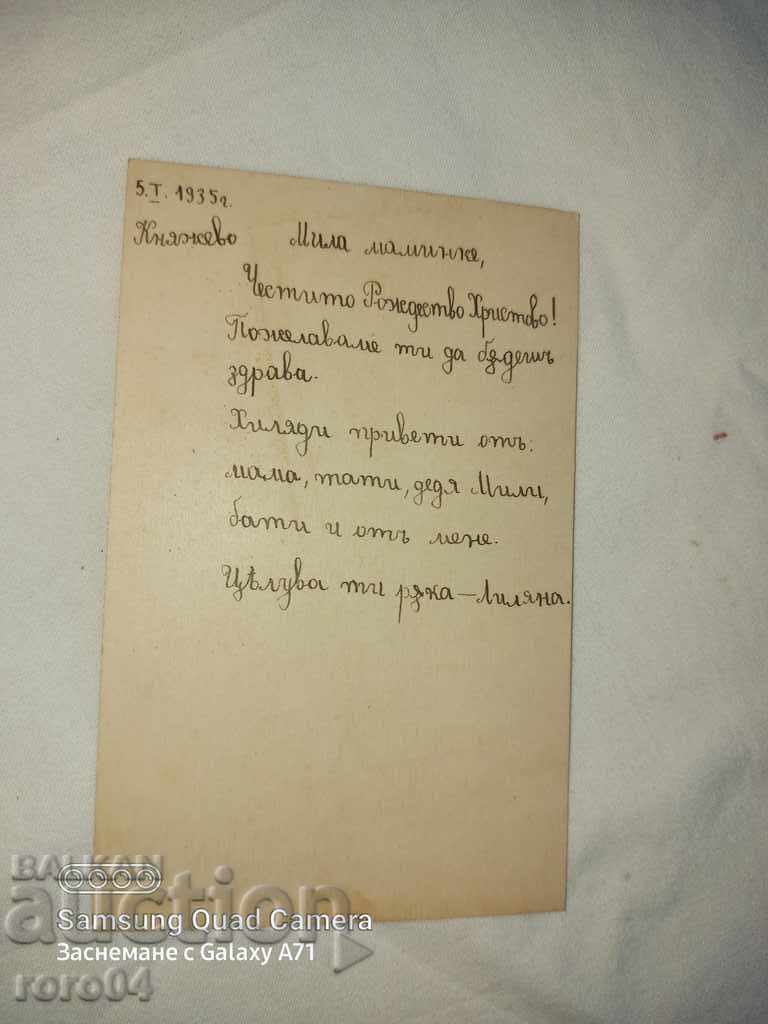 5.I. 1935г.
Княжево Мила маминке,
Честито Рождество Христово!
Пожелаваме ти да бѫдешъ
здрава.
Хиляди привети отъ:
мама, тати, дедя Мили,
бати и отъ мене.
Цѣлува ти рѫка — Лиляна.
BALKAN
auction
Samsung Quad Camera
Заснемане с Galaxy A71
roro04